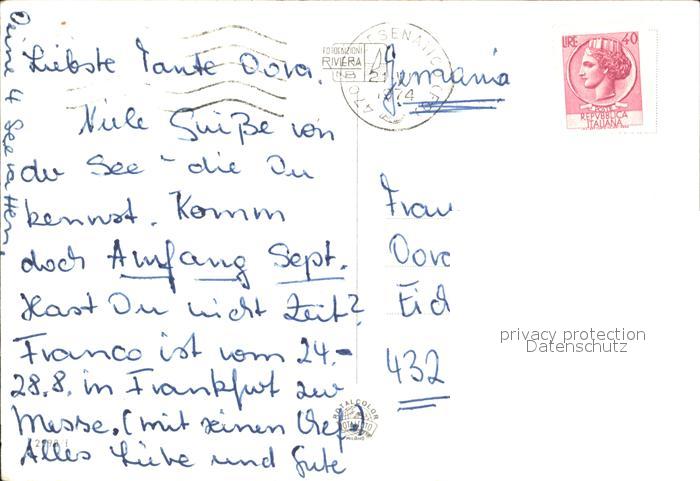 Liebste Tante Dora.
Viele Grüße von
der See - die Du
kennst. Komm
doch Anfang Sept.
Hast Du nicht Zeit?
Franco ist vom 24.-
28.8. in Frankfurt zur
Messe. (mit seinem Chef)
Alles Liebe und Gute
Deine 4
Germania
Frau
Dora
Eid
432
LIRE 40
REPVBBLICA
ITALIANA
RIVIERA
ROTALCOLOR
MILANO
privacy protection
Datenschutz